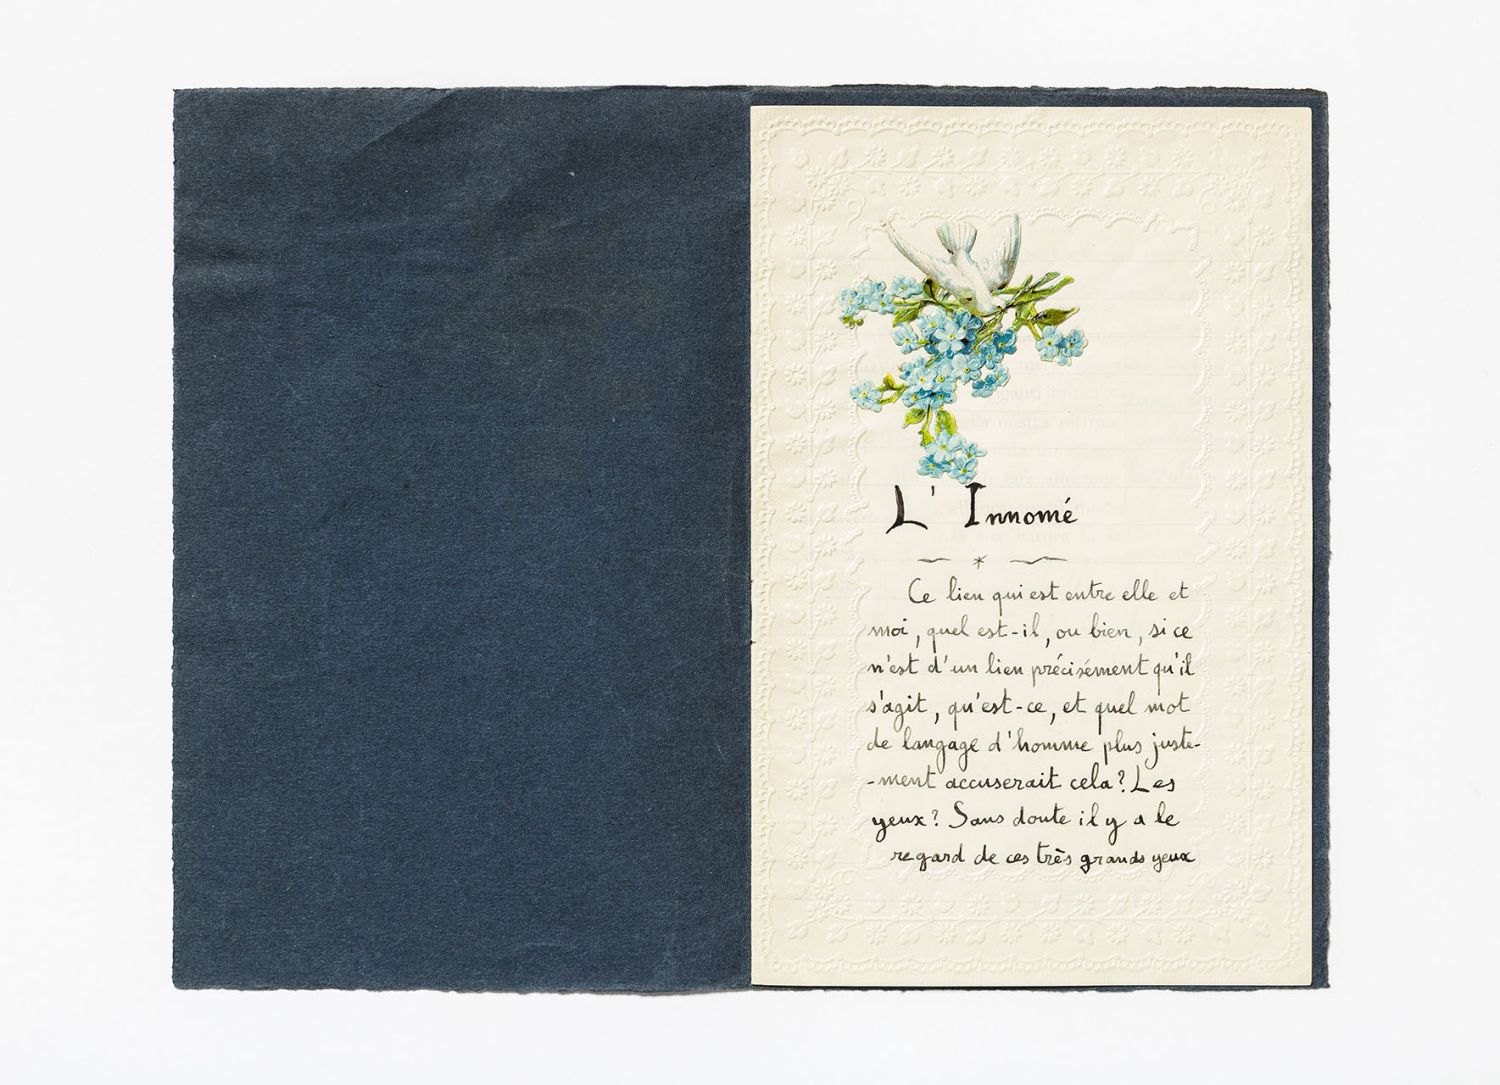 L'Innomé
Ce lien qui est entre elle et
moi, quel est-il, ou bien, si ce
n'est d'un lien précisément qu'il
s'agit, qu'est-ce, et quel mot
de langage d'homme plus juste-
-ment accuserait cela? Les
yeux? Sans doute il y a le
regard de ces très grands yeux